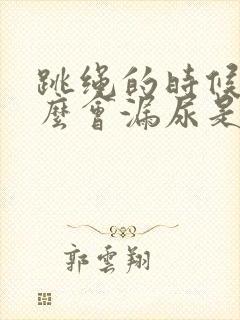 跳绳的時候
麼會漏尿是
郭雲翔